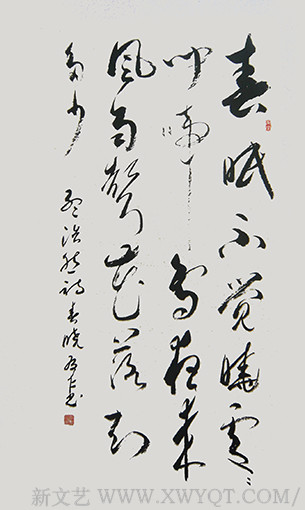 春眠不觉晓处〻
闻啼鸟夜来
风雨声花落知
多少
孟浩然诗春晓
新文艺 WWW.XWYQT.COM/